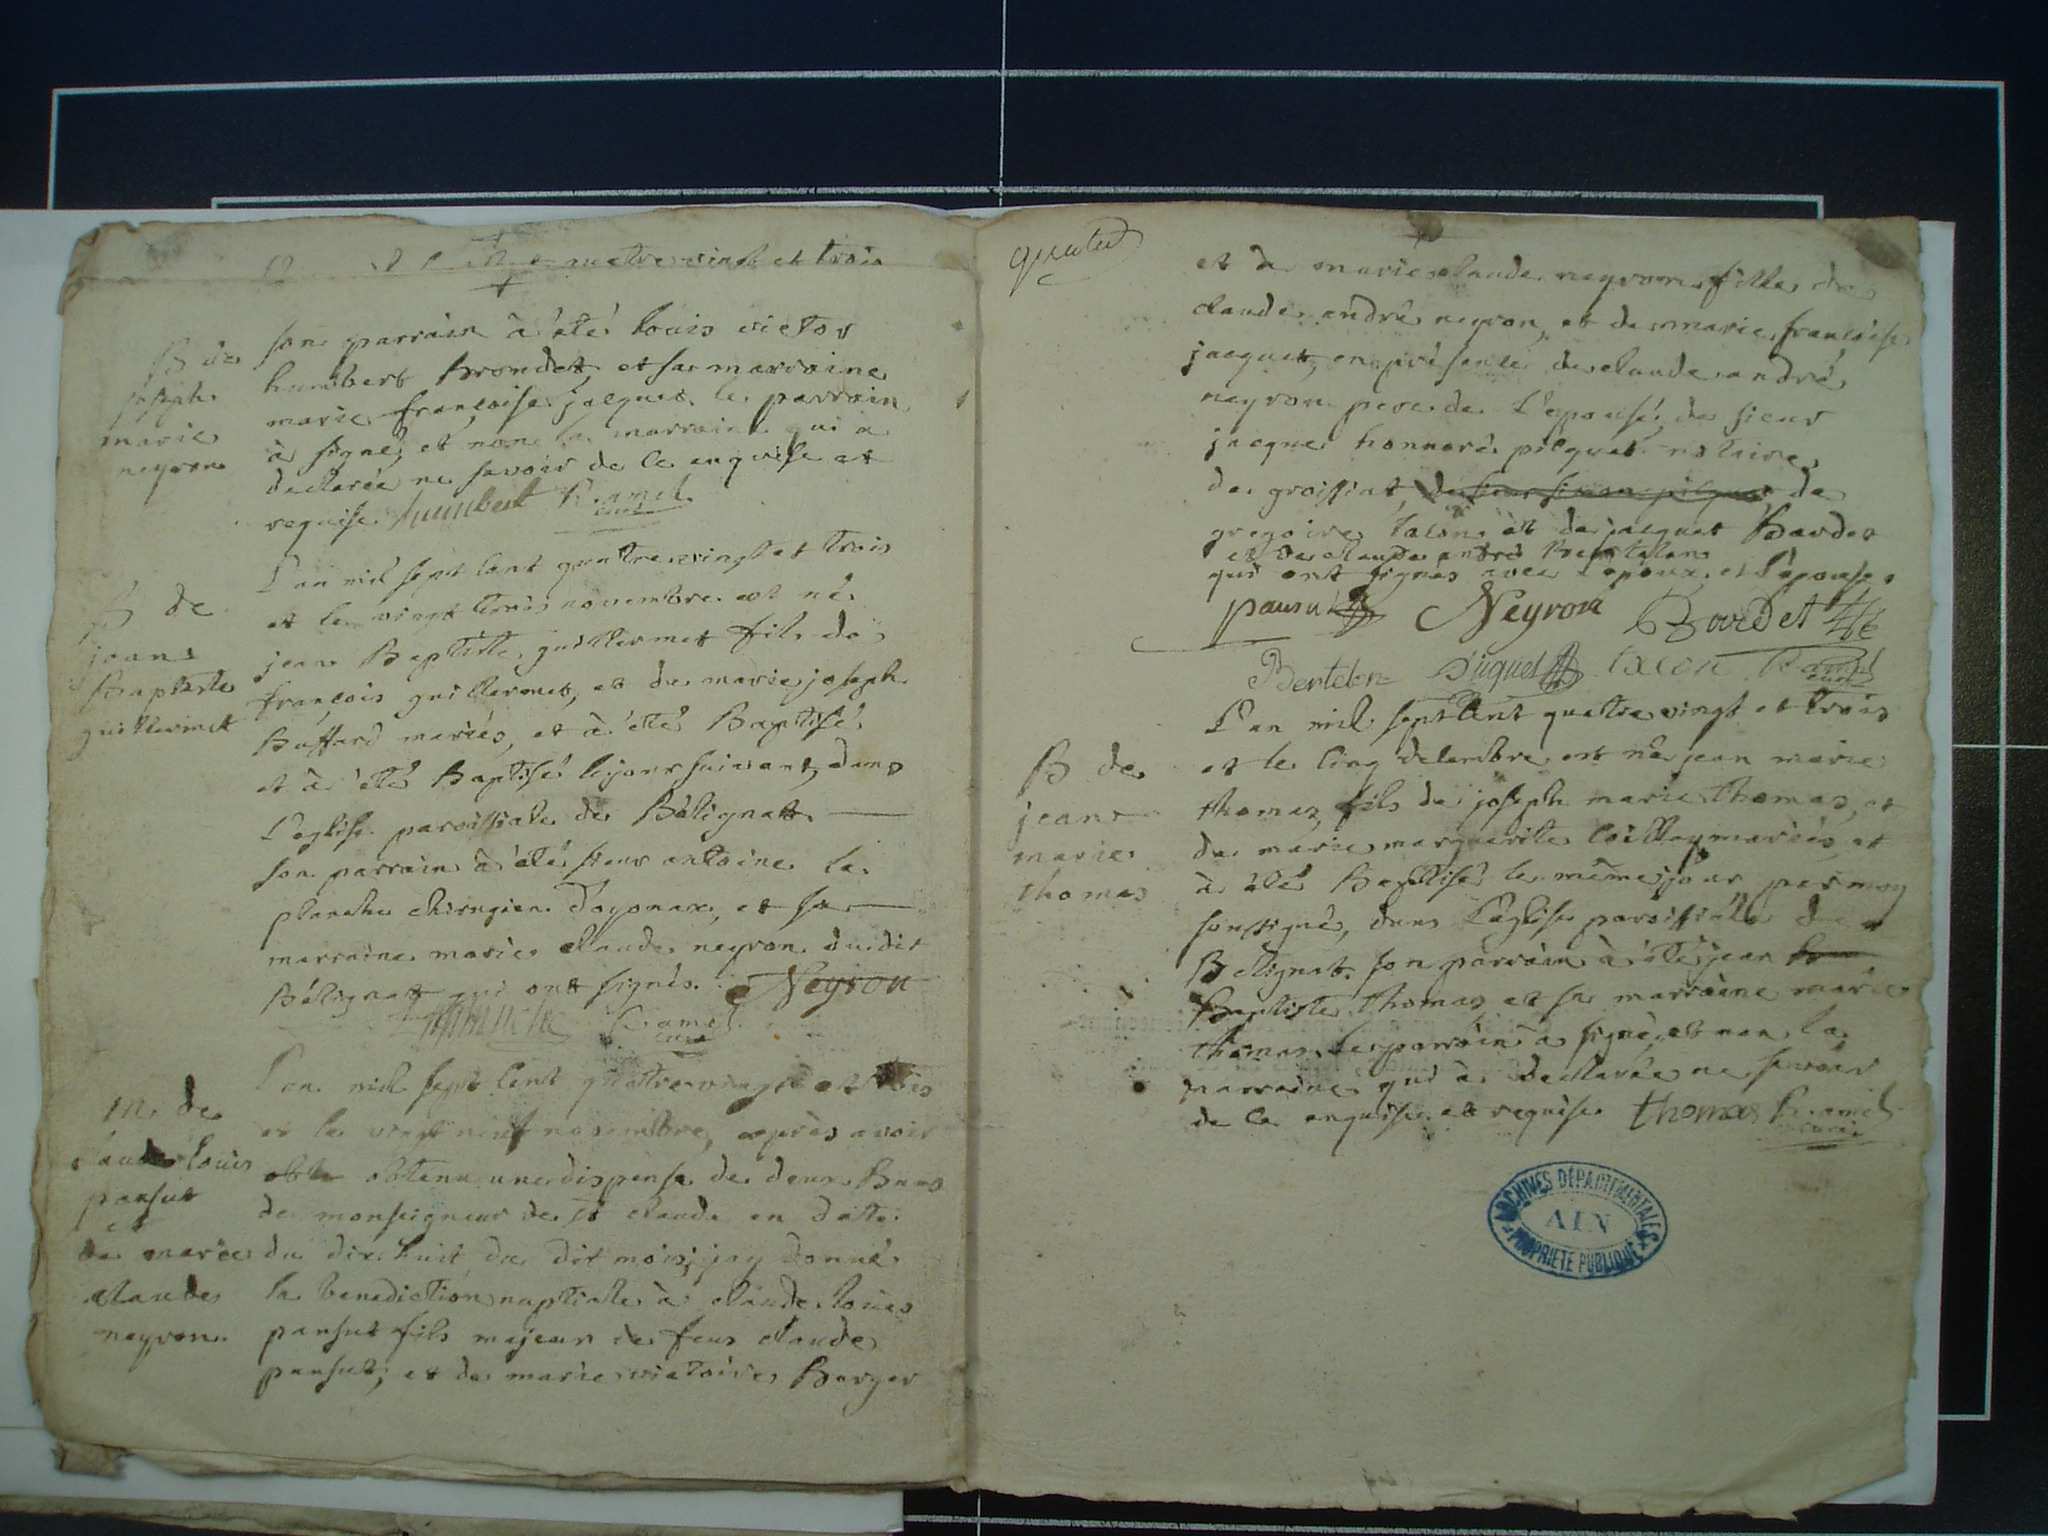 quatre vingt et trois
B de
joseph
marie
neyron
son parrain à été louis victor
humbert Brondet, et sa marraine
marie françoise jacquet. le parrain
à signé, et non la marraine qui a
declarée ne savoir de ce enquise et
requise. humbert Ramel
curé
B de
jean
baptiste
guillermet
L'an mil sept cent quatre vingt et trois
et le vingt trois novembre est né
jean Baptiste guillermet fils de
françois guillermet, et de marie joseph
Buffard mariés, et à été Baptisé
et à été Baptisé le jour suivant, dans
L'eglise paroissiale de Bélignat.
son parrain à été sieur antoine la
planche chirugien d'oyonax, et sa
marraine marie claude neyron dudit
Bélignat qui ont signés. Neyron
Ramel
curé
M. de
claude louis
pansut
et
de marie
claude
neyron.
L'an mil sept cent quatre vingt et trois
et le vingt neuf novembre, après avoir
obtenu une dispense de deux Bans
de monseigneur de st claude en datte
du dix huit du dit mois, j'ay donné
la benediction nuptiale à claude louis
pansut fils majeur de feus claude
pansut, et de marie victoire Berger
et de marie claude neyron fille de
claude andré neyron, et de marie françoise
jacquet, en présence de claude andré
neyron pere de L'epouse, de sieur
jacque honnoré piquet notaire
de groissiat, de
gregoire tacon et de jacquet Bardet
et de claude andré Bertelon
qui ont signés avec L'époux, et L'épouse.
pansut Neyron Bardet
Bertelon piquet tacon Ramel
curé
B de
jean
marie
thomas
L'an mil sept cent quatre vingt et trois
et le cinq decembre est né jean marie
thomas, fils de joseph marie thomas, et
de marie marguerite mariés, et
à été Baptisé le même jour par moy
soussigné, dans L'eglise paroissiale de
Belignat. son parrain à été jean
Baptiste thomas, et sa marraine marie
thomas. le parrain à signé, et non la
marraine qui à declarée ne savoir
de ce enquise et requise. thomas Ramel
curé
ARCHIVES DÉPARTEMENTALES
AIN
PROPRIETE PUBLIQUE